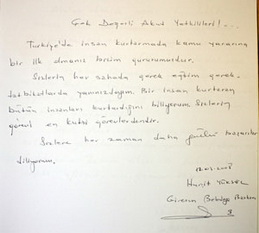 Çok Değerli Akut Yetkilileri!...
Türkiye'de insan kurtarmada kamu yararına
bir ilk olmanız bizim gururumuzdur.
Sizlerin her sahada gerek eğitim gerek-
tatbikatlarda yanınızdayım. Bir insan kurtaran
bütün insanları kurtardığını biliyorum. Sizlerin
görevi en kutsi görevlerdendir.
Sizlere her zaman daha güçlü başarılar
diliyorum.
2008
Giresun Belediye Başkanı